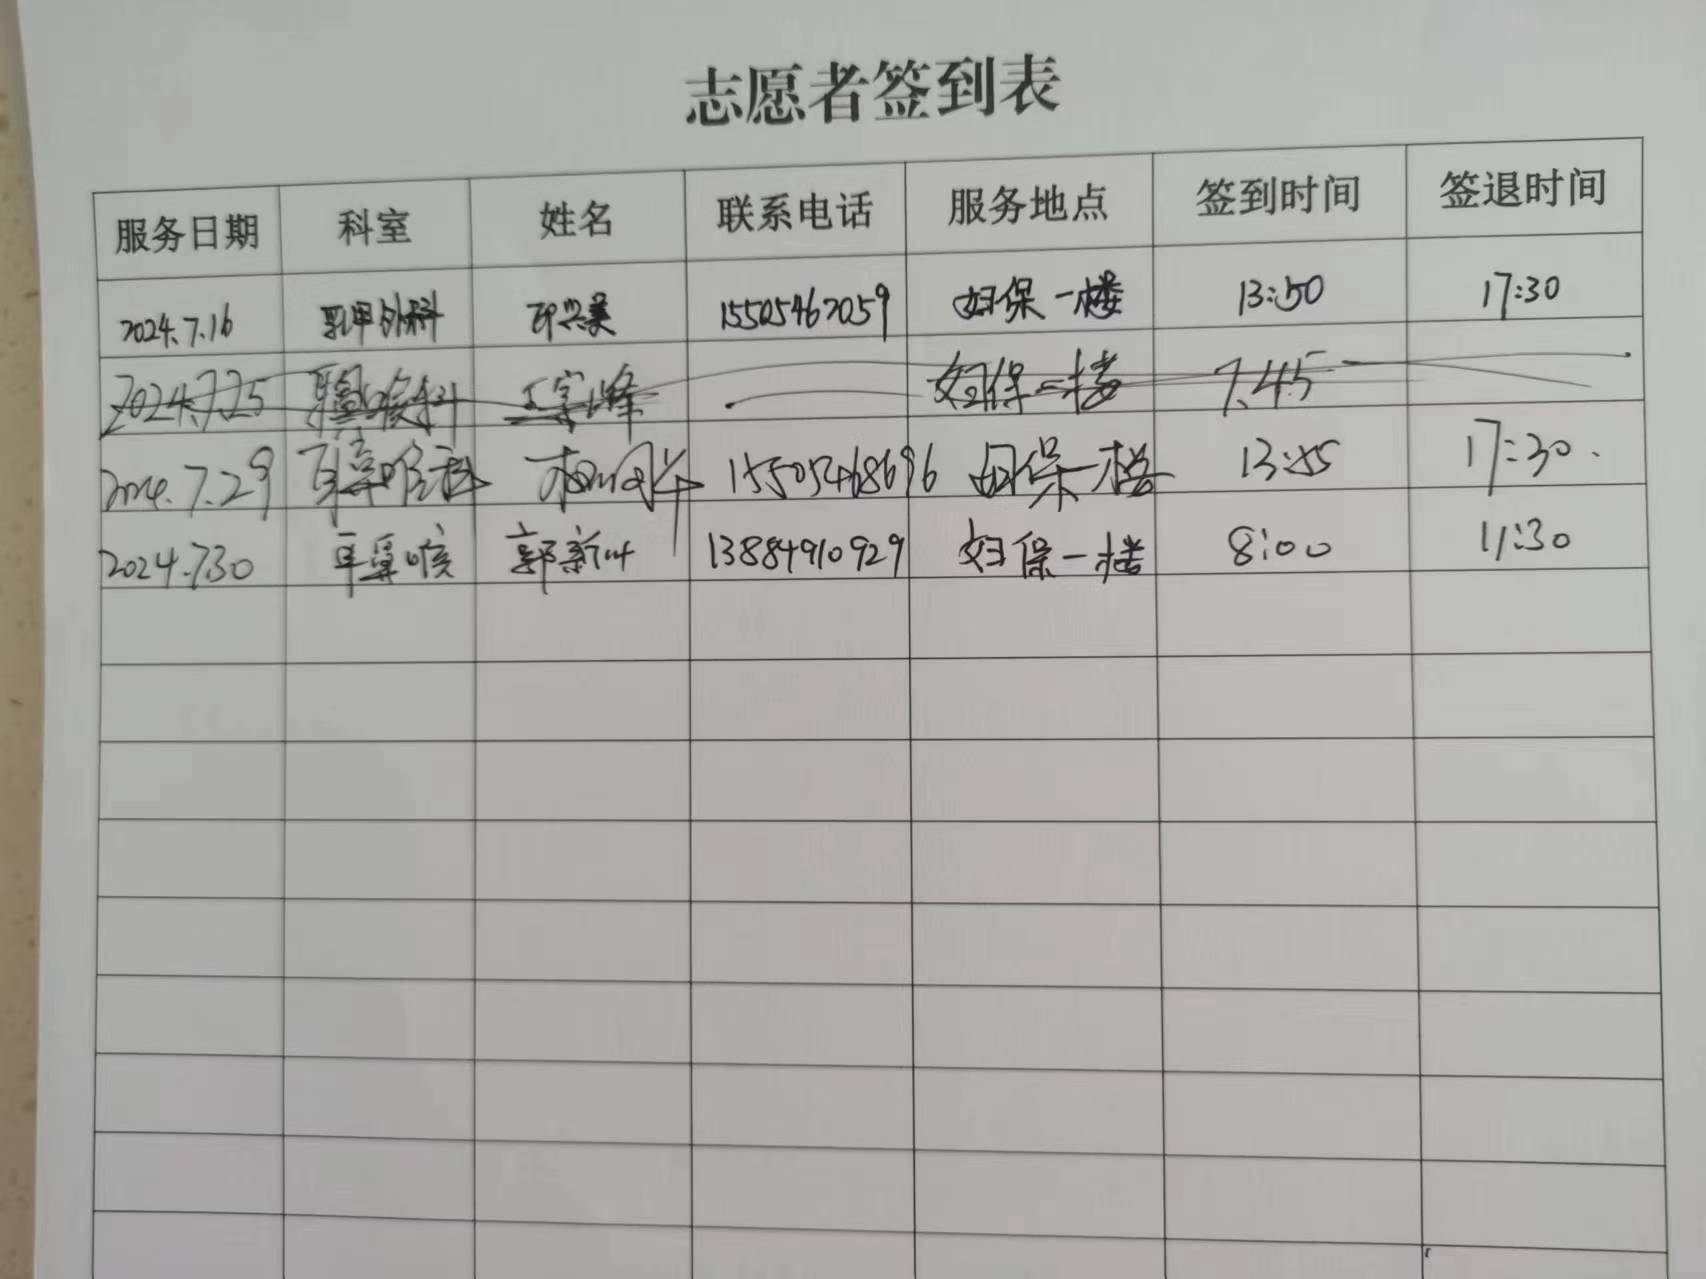 志愿者签到表
服务日期 科室 姓名 联系电话 服务地点 签到时间 签退时间
2024.7.16 乳甲外科 15505462059 妇保一楼 13:50 17:30
2024.7.25 妇保一楼 7.45
2024.7.29 耳鼻喉科 15505468696 妇保一楼 13:55 17:30.
2024.7.30 耳鼻喉 郭新叶 13884910929 妇保一楼 8:00 11:30